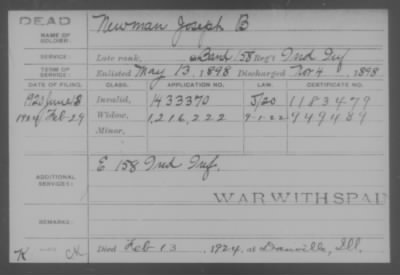 DEAD
NAME OF SOLDIER: Newman Joseph B
SERVICE: Late rank, Band 158 Reg't Ind Inf
TERM OF SERVICE: Enlisted May 13, 1898 Discharged Nov 4, 1898
DATE OF FILING. CLASS. APPLICATION NO. LAW. CERTIFICATE NO.
1920 June 18 Invalid, 1433370 5/20 1183479
1924 Feb 29 Widow, 1,216,222 9-1-22 949489
Minor,
ADDITIONAL SERVICES: E 158 Ind Inf.
WAR WITH SPAIN
REMARKS:
Died Feb 13, 1924, at Danville, Ill.